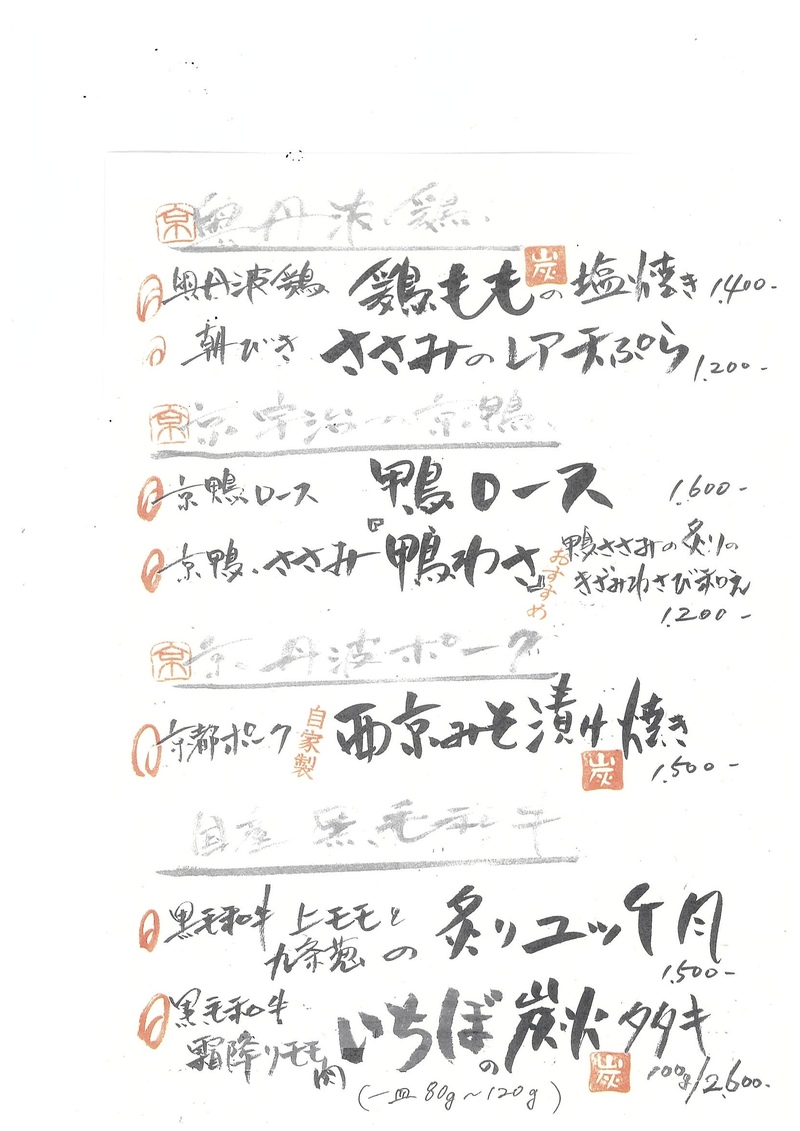 京 奥丹波鶏
奥丹波鶏 鶏ももの塩焼き 炭 1,400-
朝びき ささみのレア天ぷら 1,200-
京 京・宇治の京鴨
京鴨ロース 鴨ロース 1,600-
京鴨、ささみ 『鴨わさ』 おすすめ 鴨ささみの炙りの
きざみわさび和え
1,200-
京 京丹波ポーク
京都ポーク 自家製 西京みそ漬け焼き
炭 1,500-
国産 黒毛和牛
黒毛和牛 上モモと
九条葱の 炙りユッケ 1,500-
黒毛和牛
霜降りモモ肉 いちぼの炭火タタキ
炭 100g/2,600-
(一皿 80g~120g)